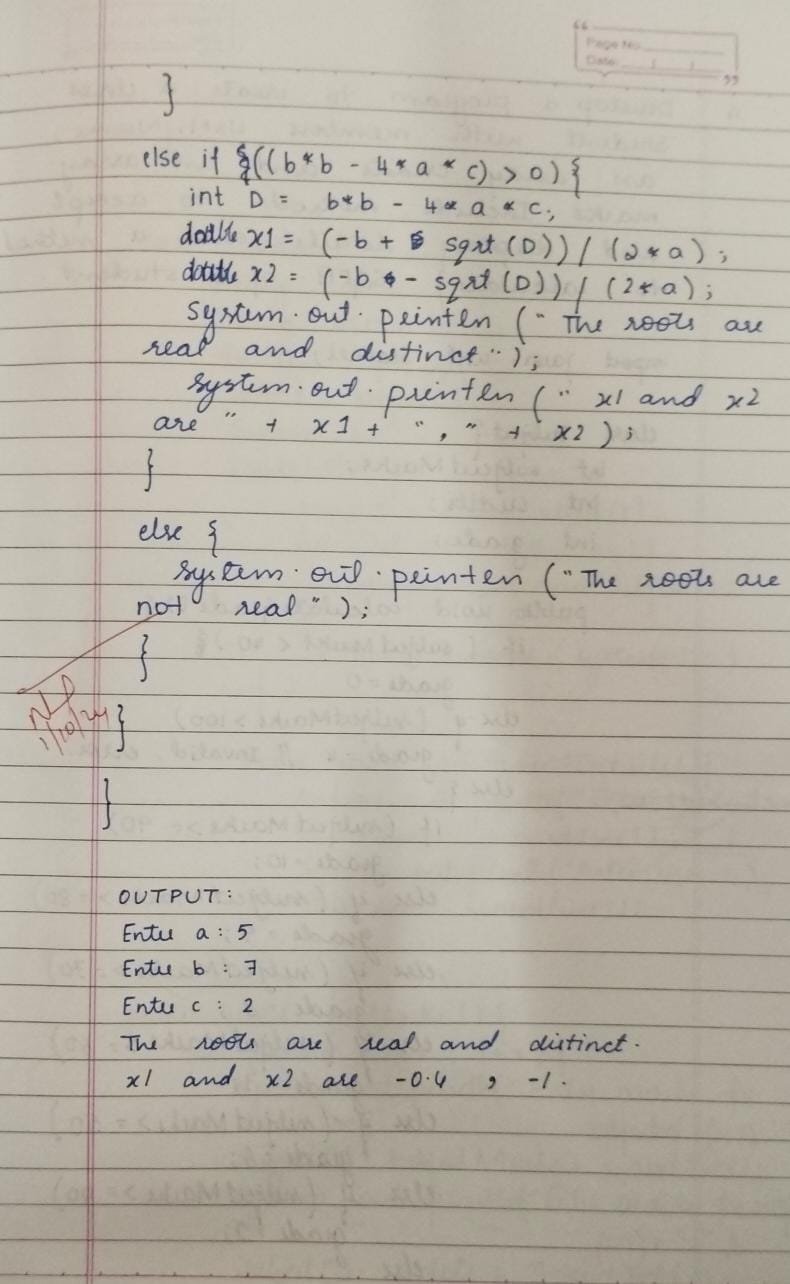 Page No.
Date:
}
else if {((b*b - 4*a*c) > 0) {
int D = b*b - 4*a*c;
double x1 = (-b + sqrt(D)) / (2*a);
double x2 = (-b - sqrt(D)) / (2*a);
System.out.println ("The roots are
real and distinct");
System.out.println (" x1 and x2
are " + x1 + "," + x2);
}
else {
System.out.println ("The roots are
not real");
}
1/10/24
}
}
OUTPUT:
Enter a: 5
Enter b: 7
Enter c: 2
The roots are real and distinct.
x1 and x2 are -0.4 , -1.